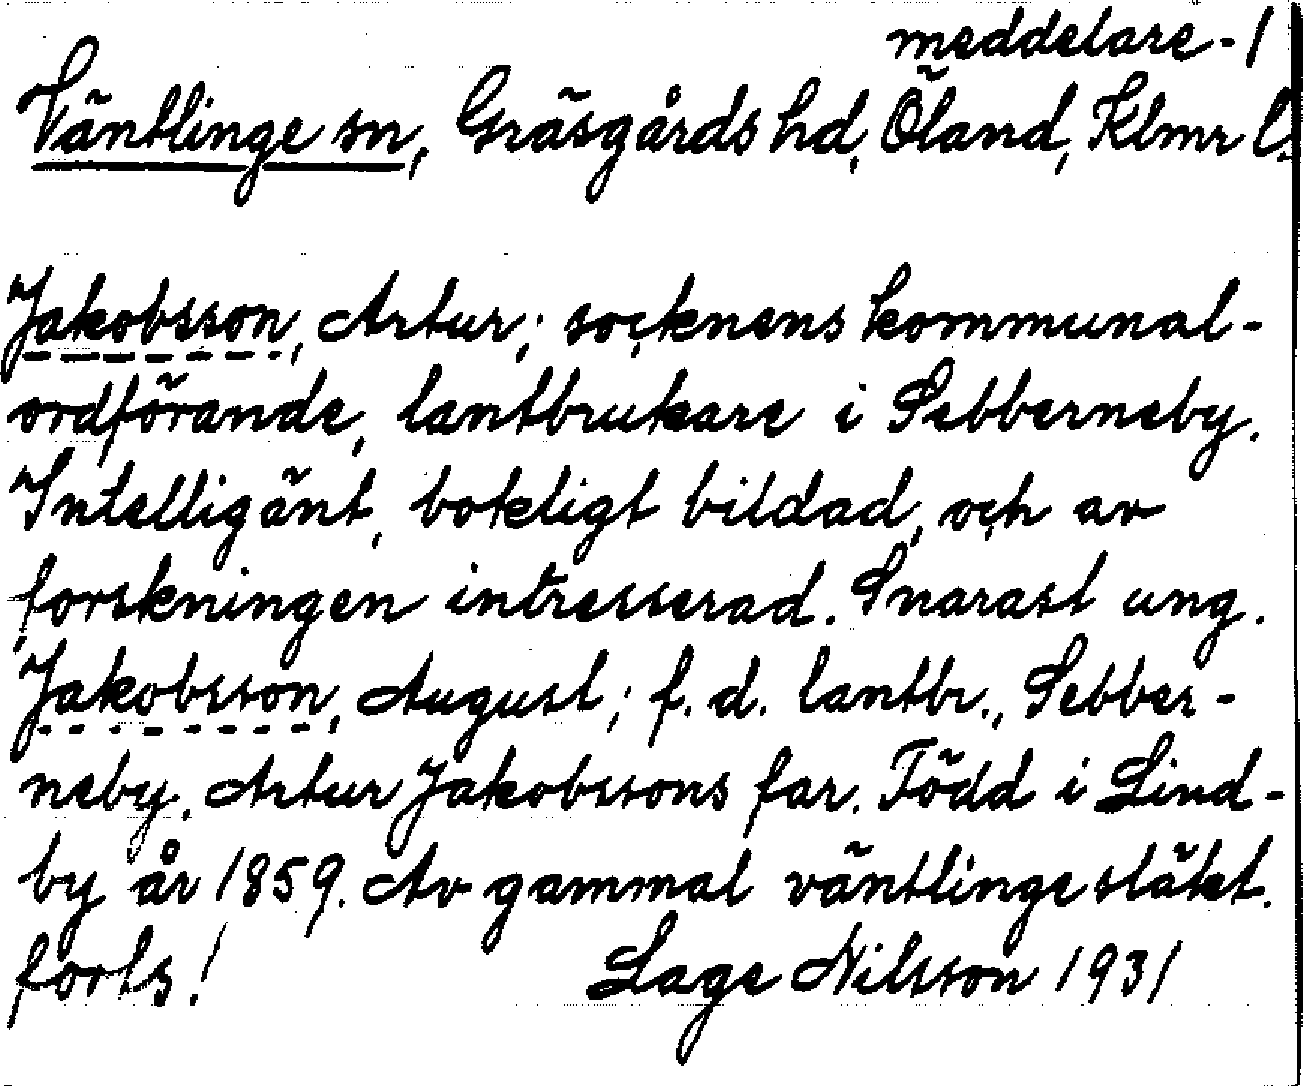 meddelare-1
Väntlinge sn, Gräsgårds hd, Öland, Klmr l.
Jakobsson, Artur; socknens kommunal-
ordförande, lantbrukare i Sebberneby.
Intelligänt, bokligt bildad, och av
forskningen intresserad. Snarast ung.
Jakobsson, August; f. d. lantbr., Sebber-
neby. Artur Jakobssons far. Född i Lind-
by år 1859. Av gammal väntlingesläkt.
forts! Lage Nilsson 1931